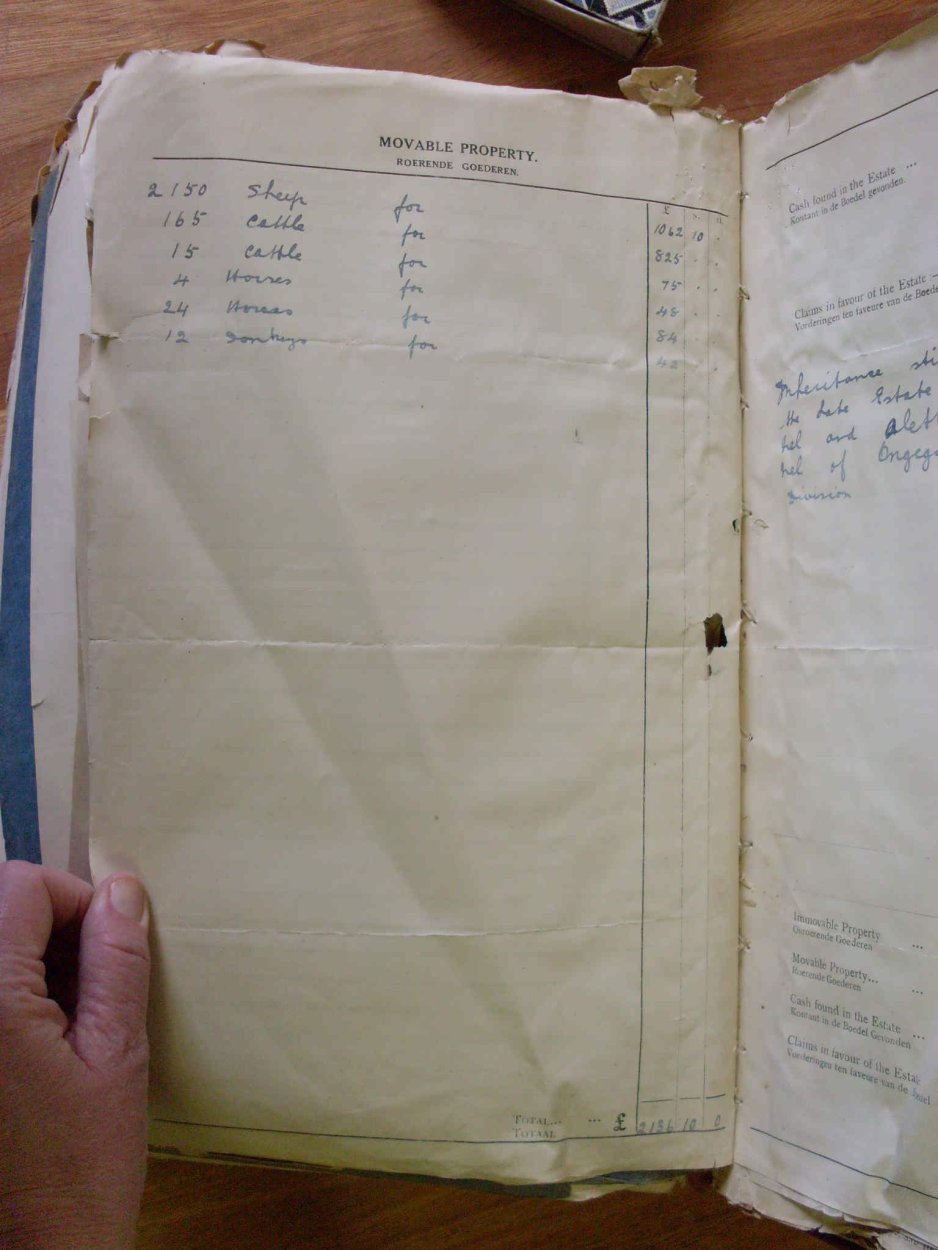 MOVABLE PROPERTY.
ROERENDE GOEDEREN.
£ s. d.
2150 Sheep for 1062 10 .
165 Cattle for 825 . .
15 Cattle for 75 . .
4 Horses for 48 . .
24 Horses for 84 .
12 Donkeys for 42 .
TOTAL... ... £ 2136 10 0
TOTAAL
Cash found in the Estate ...
Kontant in de Boedel gevonden.
Claims in favour of the Estate :—
Vorderingen ten faveure van de Boedel
Inheritance sti
the late Estate
nel and Alett
nel of
Division
Immovable Property ...
Onroerende Goederen
Movable Property... ...
Roerende Goederen
Cash found in the Estate ...
Kontant in de Boedel Gevonden
Claims in favour of the Estate
Vorderingen ten faveure van de Boedel